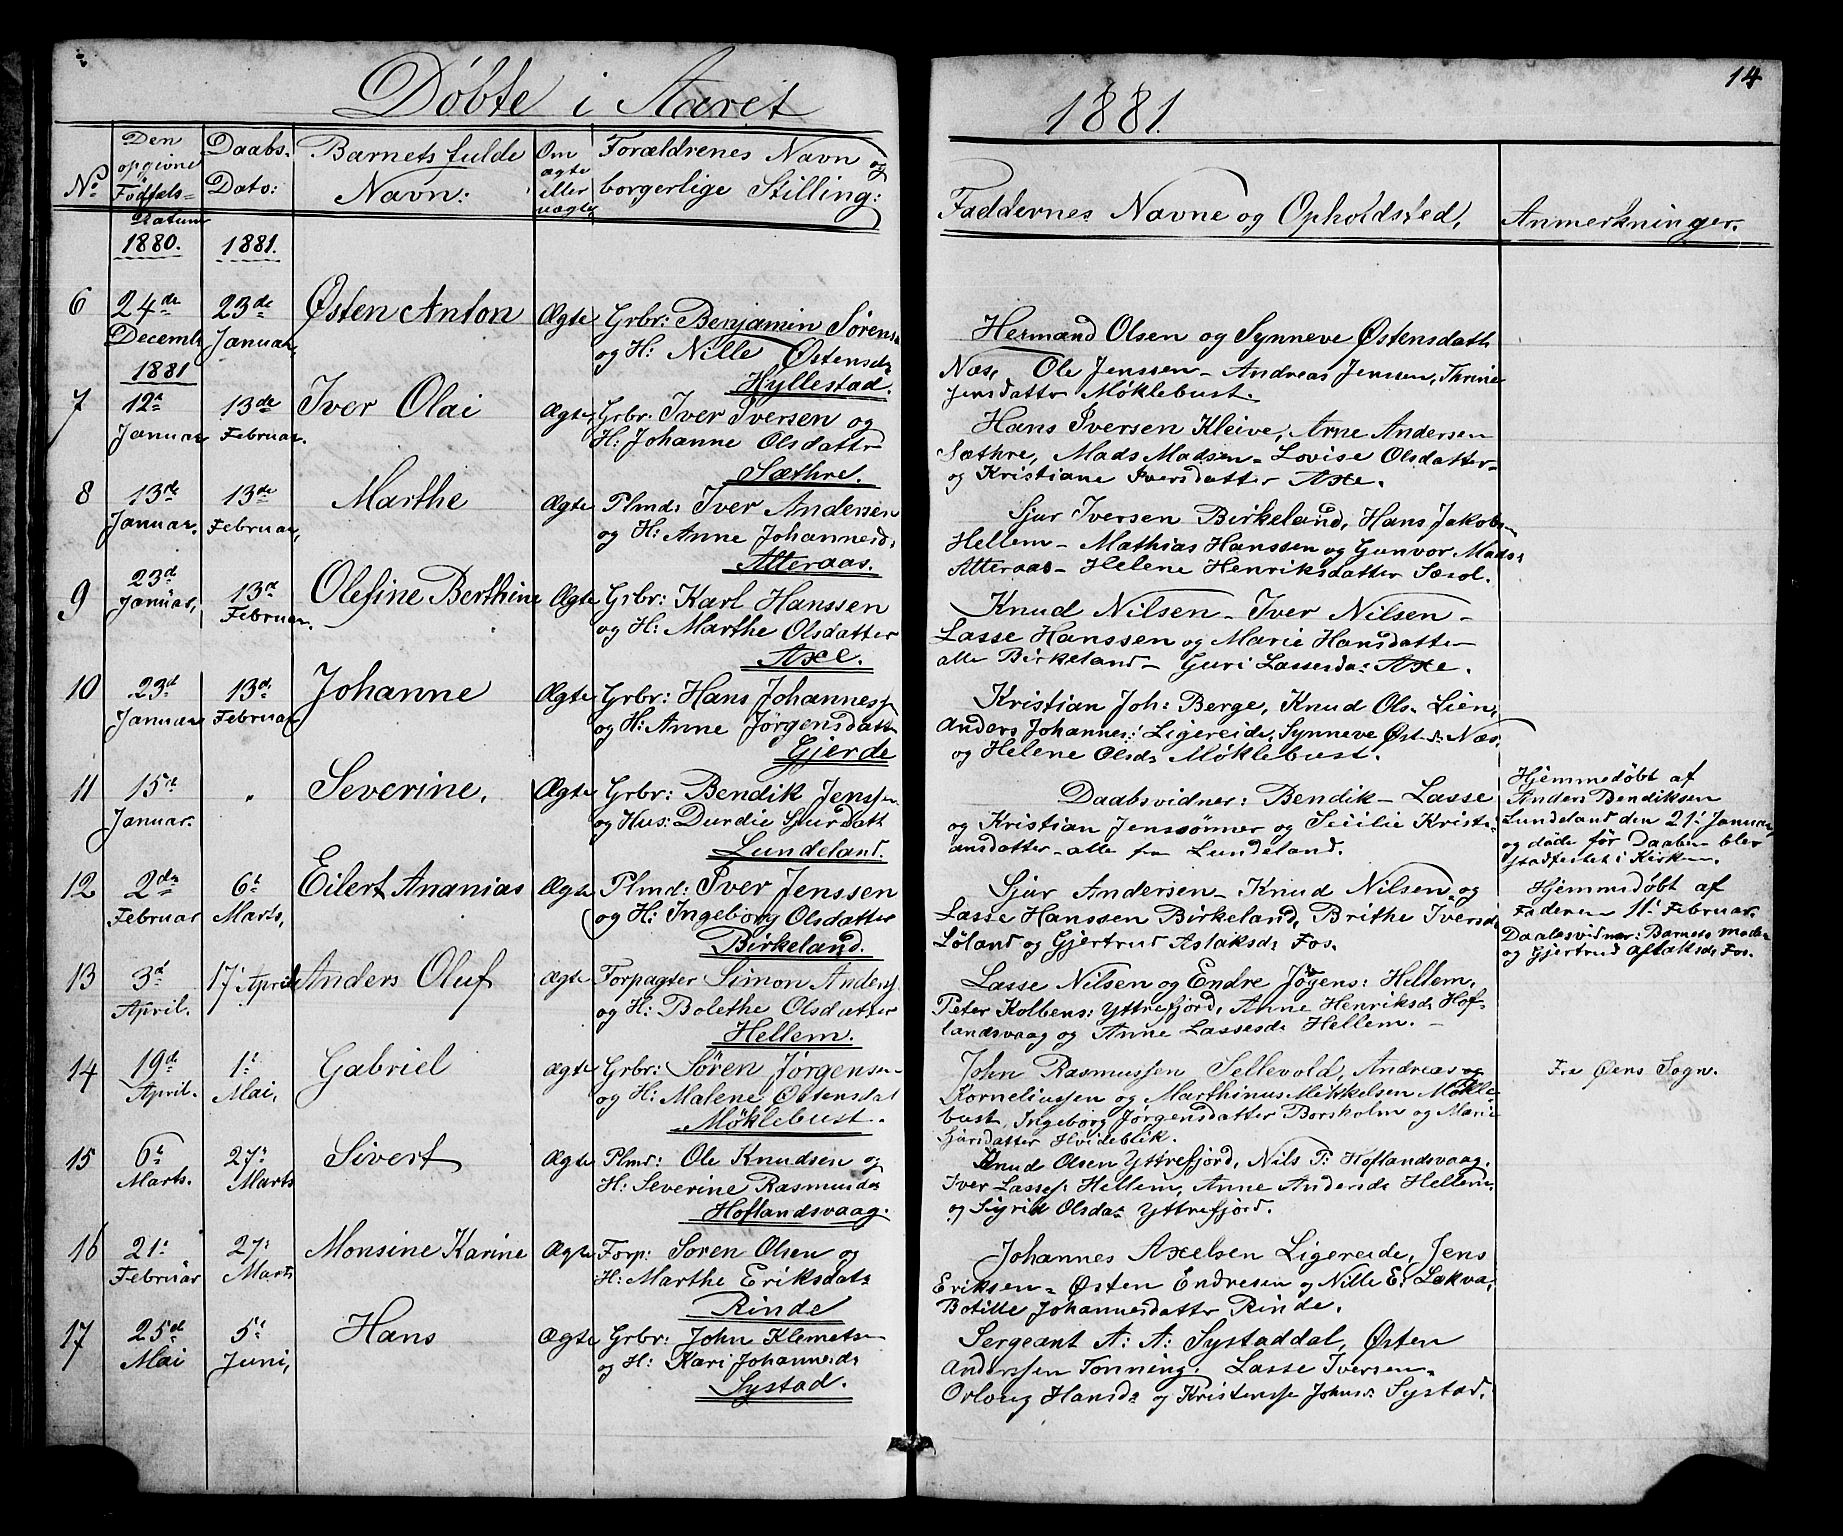 Døbte i Aaret
1881.
14
No
Den opgivne Födsels=Datum
Daabs. Dato:
Barnets fulde Navn:
Om ægte eller uægte
Forældrenes Navn og borgerlige Stilling:
Faddernes Navne og Opholdsted.
Anmerkninger.
1880.
1881.
6
24de Decembr
23de Januar.
Østen Anton
Ægte
Grbr: Benjamin Sørens.
og H: Nille Østensdr
Hyllestad.
Hermand Olsen og Synneve Østensdattr
Næs, Ole Jenssen – Andreas Jenssen, Thrine
Jensdatter Møklebust.
1881
7
12t Januar
13de Februar.
Iver Olai
Ægte
Grbr: Iver Iversen og
H: Johanne Olsdattr
Sæthre.
Hans Iversen Kleive, Arne Andersen
Sæthre, Mads Madsen – Lovise Olsdatter –
og Kristiane Iversdatter Axe.
8
13d Januar.
13de Februar,
Marthe
Ægte
Plmd: Iver Andersen
og H: Anne Johannesd.
Atteraas.
Sjur Iversen Birkeland, Hans Jakobs.
Hellem – Mathias Hanssen og Gunvor Mads:
Atteraas – Helene Henriksdatter Sæsol.
9
23d Januar,
13d Februar.
Olefine Berthine
Ægte
Grbr: Karl Hanssen
og H: Marthe Olsdatter
Axe.
Knud Nilsen – Iver Nilsen –
Lasse Hanssen og Marie Hansdatter
alle Birkeland – Guri Lassesda: Axe.
10
23d Januar
13d Februar
Johanne
Ægte
Grbr: Hans Johanness.
og H: Anne Jørgensdattr
Gjerde
Kristian Joh: Berge, Knud Ols. Lien,
Anders Johannes: Ligereide, Synneve Østd: Næs,
og Helene Olsdr Møklebust.
11
15d Januar.
Severine.
Ægte
Grbr: Bendik Jenssen
og Hus: Durdie Sjurdatt
Lundeland.
Daabsvidner: Bendik – Lasse
og Kristian Jenssønner og Secilie Kristi-
ansdatter – alle fra Lundeland.
Hjemmedøbt af
Anders Bendiksen
Lundeland den 21: Januar,
og døde før Daaben blev
stadfestet i Kirken.
12
2de Februar
6t Marts,
Eilert Ananias
Ægte
Plmd: Iver Jenssen
og H: Ingeborg Olsdatter
Birkeland.
Sjur Andersen – Knud Nilsen og
Lasse Hanssen Birkeland, Brithe Iversd.
Løland og Gjertrud Aslaksd: Fos.
Hjemmedøbt af
Faderen 11t Februar.
Daabsvidner: Barnets moder
og Gjertrud Aslaksd: Fos.
13
3d April.
17t April
Anders Oluf
ægte
Forpagter Simon Anders.
og H: Bolethe Olsdatter
Hellem.
Lasse Nilsen og Endre Jögens: Hellem,
Peter Kolbens: Yttrefjord, Anne Henriksd: Hof-
landsvaag og Anne Lassesd: Hellem. –
14
19d April.
1t Mai,
Gabriel
ægte
Grbr: Søren Jørgensen
og H: Malene Østensdat
Møklebust.
John Rasmussen Sellevold, Andreas og
Korneliussen og Marthinus Mikkelsen Møkle-
bust, Ingeborg Jørgensdatter Borsholm og Marie
Sjursdatter Hvideblik.
Fra Øens Sogn.
15
6t Marts.
27: Marts
Sivert
Ægte
Plmd: Ole Knudsen og
H: Severine Rasmusdr
Hoflandsvaag.
Knud Olsen Yttrefjord, Nils P: Hoflandsvaag.
Iver Lasses: Hellem, Anne Andersd: Hellem
og Sigrid Olsda: Yttrefjord.
16
21: Februar
27: Marts
Monsine Karine
Ægte
Forp: Soren Olsen og
H: Marthe Eriksdat:
Rinde
Johannes Axelsen Ligereide, Jens
Eriksen – Østen Endresen og Nille E: Lekva,
Botille Johannesdatter Rinde.
17
25d Mai
5t Juni,
Hans
Ægte
Grbr: John Klemets.
og H: Kari Johannesd:
Systad.
Sergeant A: A: Systaddal, Østen
Anderssen Tonning. Lasse Iversen –
Orloug Hansd: og Kristensse Johnsd: Systad.